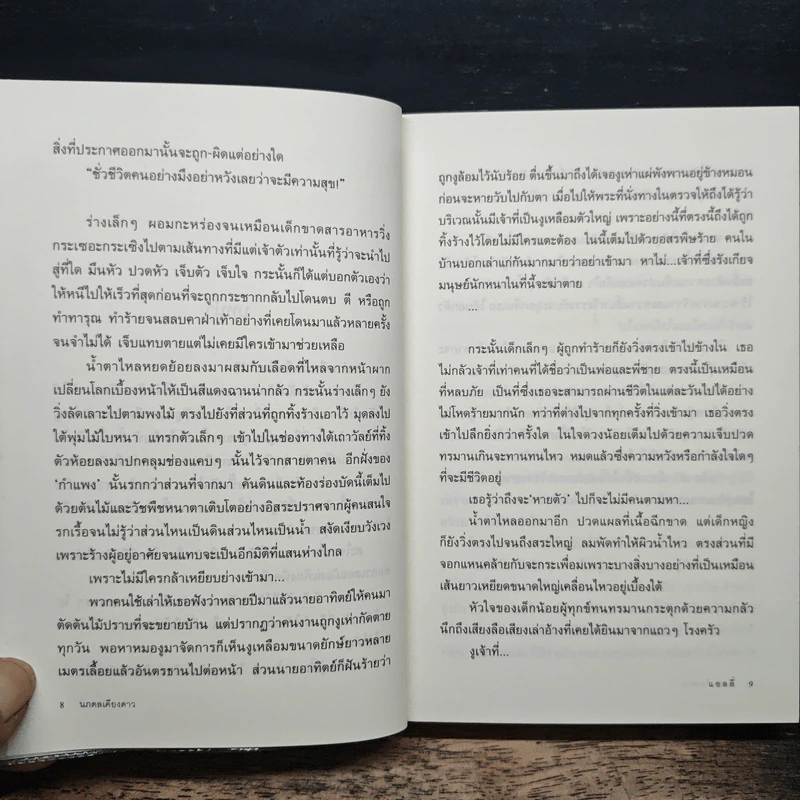 สิ่งที่ประกาศออกมานั้นจะถูก-ผิดแต่อย่างใด
“ชั่วชีวิตคนอย่างมึงอย่าหวังเลยว่าจะมีความสุข!”
ร่างเล็กๆ ผอมกะหร่องจนเหมือนเด็กขาดสารอาหารวิ่ง
กระเซอะกระเซิงไปตามเส้นทางที่มีแต่เจ้าตัวเท่านั้นที่รู้ว่าจะนำไป
สู่ที่ใด มึนหัว ปวดหัว เจ็บตัว เจ็บใจ กระนั้นก็ได้แต่บอกตัวเองว่า
ให้หนีไปให้เร็วที่สุดก่อนที่จะถูกกระชากกลับไปโดนตบ ตี หรือถูก
ทำทารุณ ทำร้ายจนสลบคาฝ่าเท้าอย่างที่เคยโดนมาแล้วหลายครั้ง
จนจำไม่ได้ เจ็บแทบตายแต่ไม่เคยมีใครเข้ามาช่วยเหลือ
น้ำตาไหลหยดย้อยลงมาผสมกับเลือดที่ไหลจากหน้าผาก
เปลี่ยนโลกเบื้องหน้าให้เป็นสีแดงฉานน่ากลัว กระนั้นร่างเล็กๆ ยัง
วิ่งลัดเลาะไปตามพงไม้ ตรงไปยังที่ส่วนที่ถูกทิ้งร้างเอาไว้ มุดลงไป
ใต้พุ่มไม้ใบหนา แทรกตัวเล็กๆ เข้าไปในช่องทางใต้เถาวัลย์ที่ทิ้ง
ตัวห้อยลงมาปกคลุมช่องแคบๆ นั้นไว้จากสายตาคน อีกฝั่งของ
‘กำแพง’ นั้นรกกว่าส่วนที่จากมา คันดินและท้องร่องบัดนี้เต็มไป
ด้วยต้นไม้และวัชพืชหนาตาเติบโตอย่างอิสระปราศจากผู้คนสนใจ
รกเรื้อจนไม่รู้ว่าส่วนไหนเป็นดินส่วนไหนเป็นน้ำ สงัดเงียบวังเวง
เพราะร้างผู้อยู่อาศัยจนแทบจะเป็นอีกมิติที่แสนห่างไกล
เพราะไม่มีใครกล้าเหยียบย่างเข้ามา...
พวกคนใช้เล่าให้เธอฟังว่าหลายปีมาแล้วนายอาทิตย์ให้คนมา
ตัดต้นไม้ปราบที่จะขยายบ้าน แต่ปรากฏว่าคนงานถูกงูเห่ากัดตาย
ทุกวัน พอหาหมองูมาจัดการก็เห็นงูเหลือมขนาดยักษ์ยาวหลาย
เมตรเลื้อยแล้วอันตรธานไปต่อหน้า ส่วนนายอาทิตย์ก็ฝันร้ายว่า
8 นภดลเคียงดาว
ถูกงูล้อมไว้นับร้อย ตื่นขึ้นมาถึงได้เจองูเห่าแผ่พังพานอยู่ข้างหมอน
ก่อนจะหายวับไปกับตา เมื่อไปให้พระที่นั่งทางในตรวจให้ถึงได้รู้ว่า
บริเวณนั้นมีเจ้าที่เป็นงูเหลือมตัวใหญ่ เพราะอย่างนี้ที่ตรงนี้ถึงได้ถูก
ทิ้งร้างไว้โดยไม่มีใครแตะต้อง ในนี้เต็มไปด้วยอสรพิษร้าย คนใน
บ้านบอกเล่าแก่กันมากมายว่าอย่าเข้ามา หาไม่...เจ้าที่ซึ่งรังเกียจ
มนุษย์นักหนาในที่นี้จะฆ่าตาย
...
กระนั้นเด็กเล็กๆ ผู้ถูกทำร้ายก็ยังวิ่งตรงเข้าไปข้างใน เธอ
ไม่กลัวเจ้าที่เท่าคนที่ได้ชื่อว่าเป็นพ่อและพี่ชาย ตรงนี้เป็นเหมือน
ที่หลบภัย เป็นที่ซึ่งเธอจะสามารถผ่านชีวิตในแต่ละวันไปได้อย่าง
ไม่โหดร้ายมากนัก ทว่าที่ต่างไปจากทุกครั้งที่วิ่งเข้ามา เธอวิ่งตรง
เข้าไปลึกยิ่งกว่าครั้งใด ในใจดวงน้อยเต็มไปด้วยความเจ็บปวด
ทรมานเกินจะทานทนไหว หมดแล้วซึ่งความหวังหรือกำลังใจใดๆ
ที่จะมีชีวิตอยู่
เธอรู้ว่าถึงจะ‘หายตัว’ ไปก็จะไม่มีคนตามหา...
น้ำตาไหลออกมาอีก ปวดแผลที่เนื้อฉีกขาด แต่เด็กหญิง
ก็ยังวิ่งตรงไปจนถึงสระใหญ่ ลมพัดทำให้ผิวน้ำไหว ตรงส่วนที่มี
จอกแหนคล้ายกับจะกระเพื่อมเพราะบางสิ่งบางอย่างที่เป็นเหมือน
เส้นยาวเหยียดขนาดใหญ่เคลื่อนไหวอยู่เบื้องใต้
หัวใจของเด็กน้อยผู้ทุกข์ทนทรมานกระตุกด้วยความกลัว
นึกถึงเสียงลือเสียงเล่าอ้างที่เคยได้ยินมาจากแถวๆ โรงครัว
งูเจ้าที่...
แชลลี่ 9